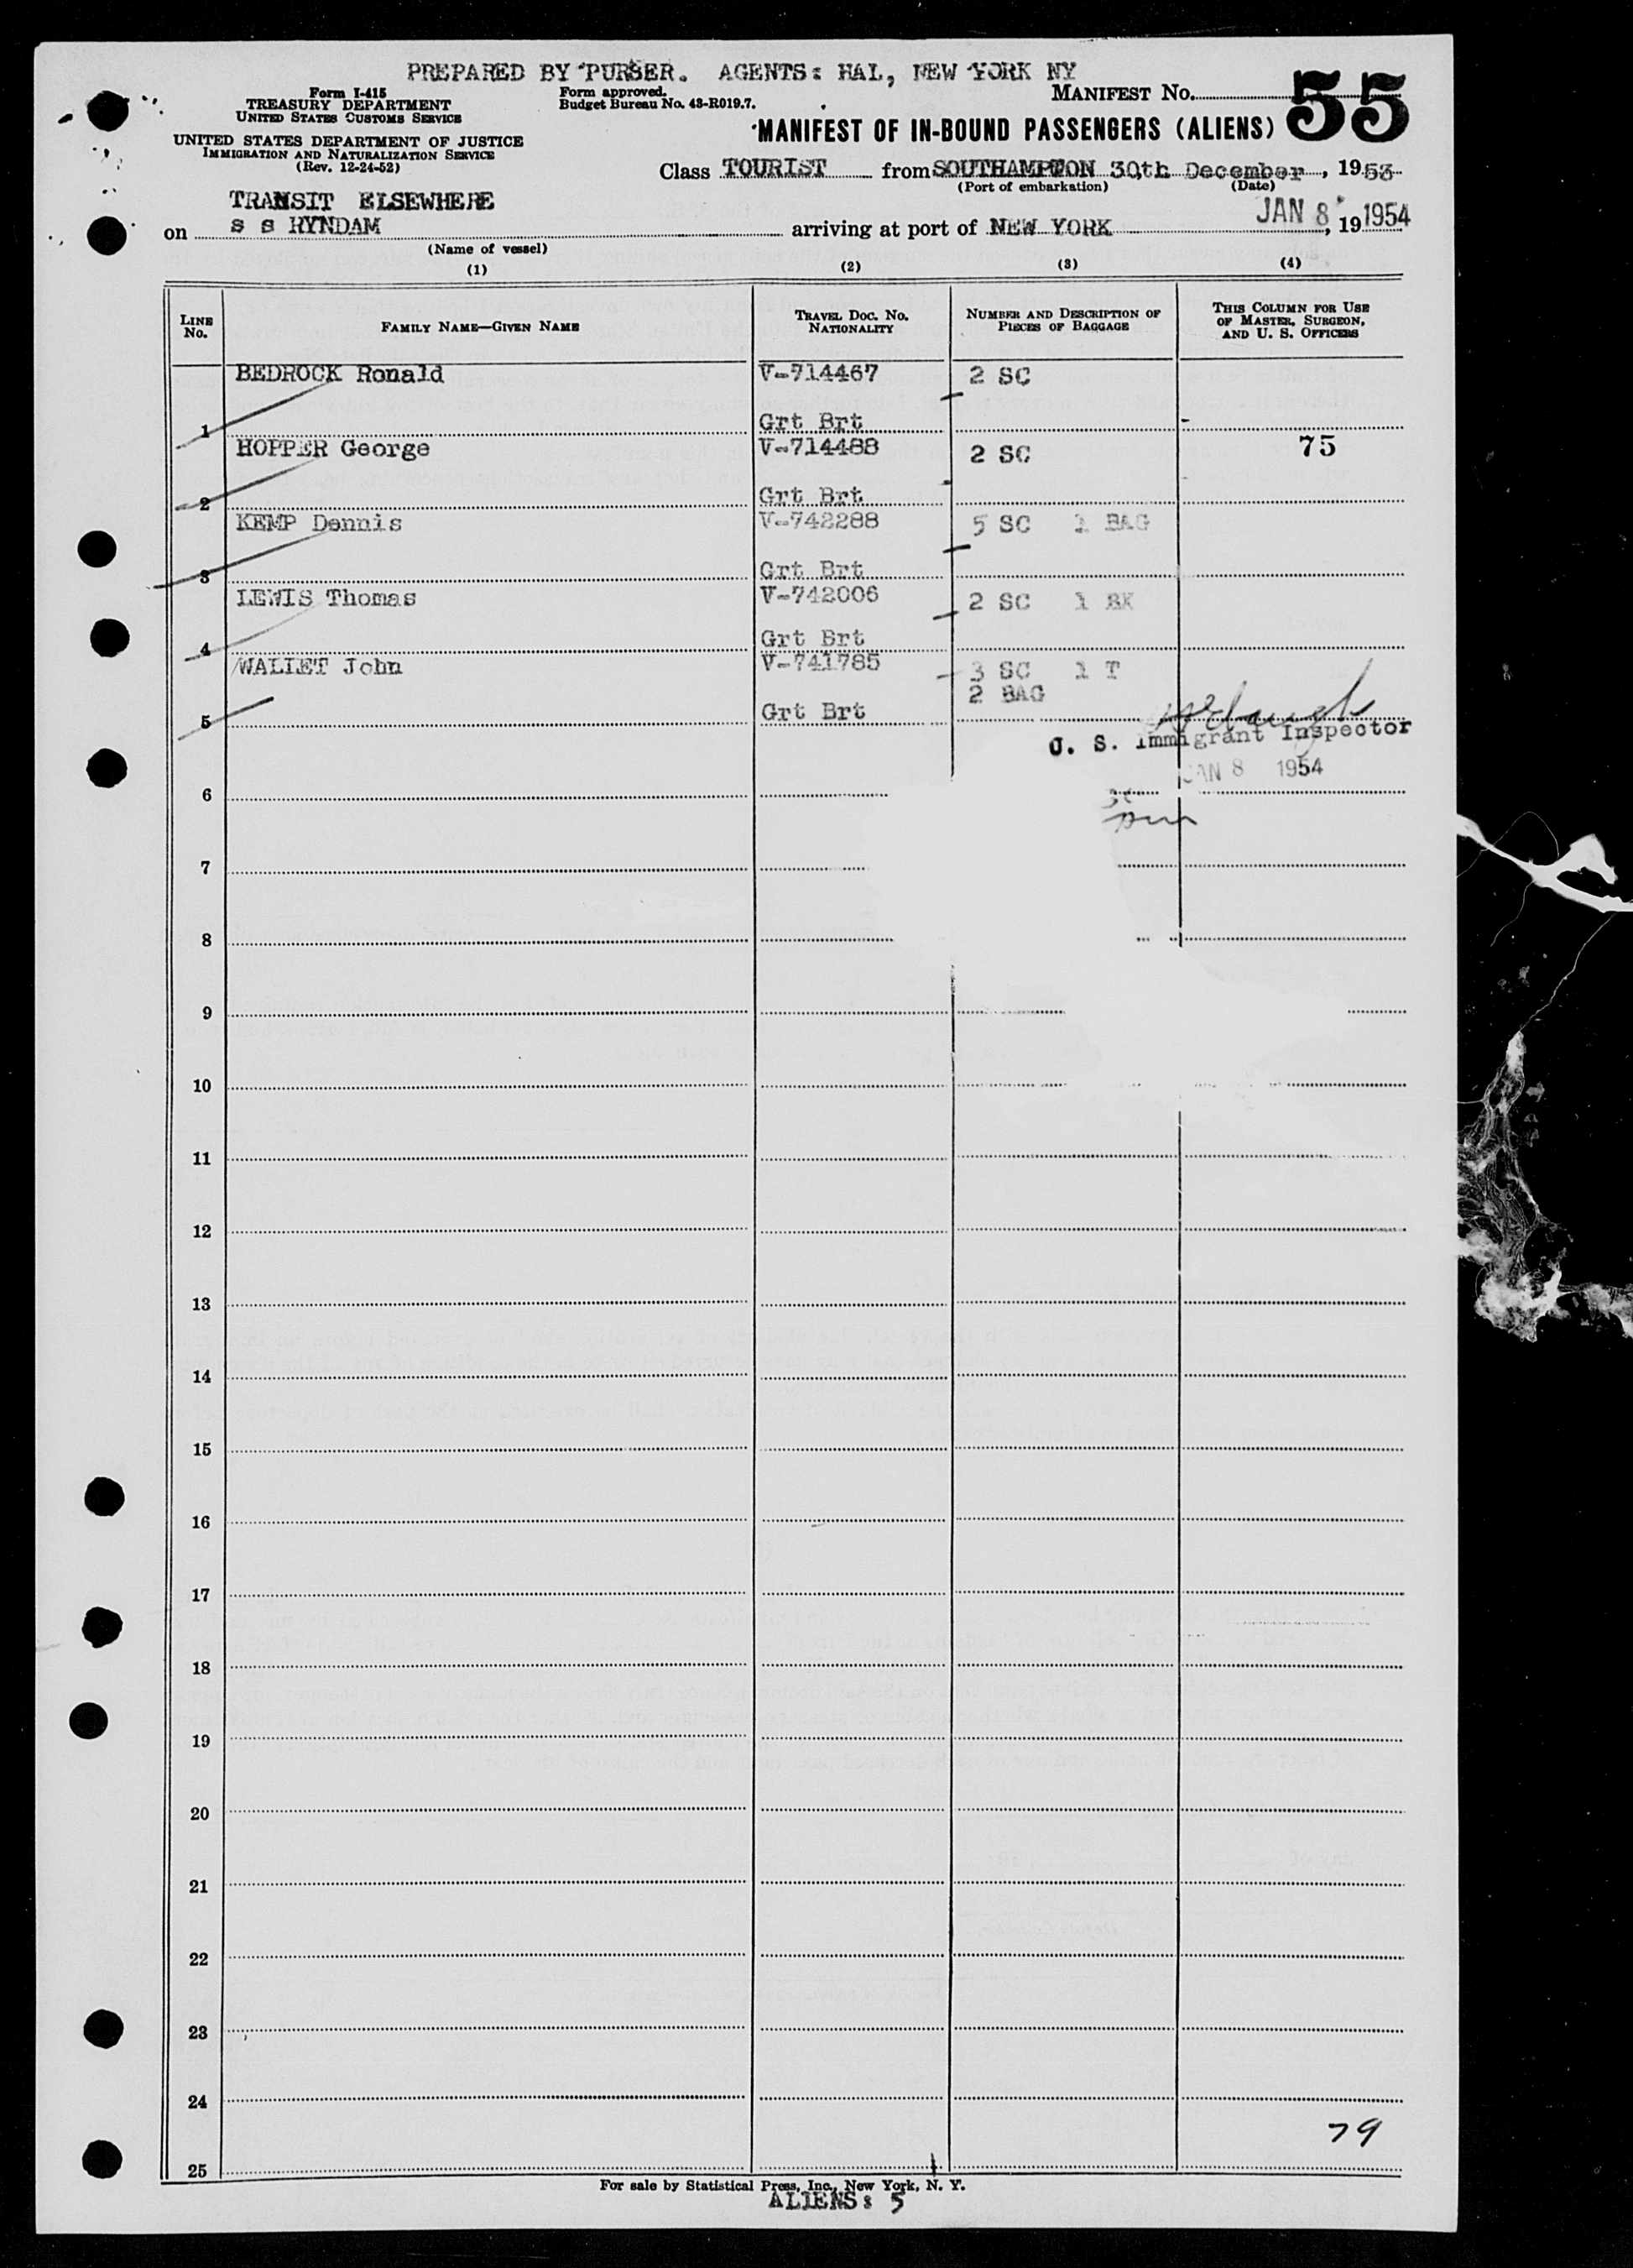 PREPARED BY PURSER. AGENTS: HAL, NEW YORK NY
Form I-415
TREASURY DEPARTMENT
UNITED STATES CUSTOMS SERVICE
UNITED STATES DEPARTMENT OF JUSTICE
IMMIGRATION AND NATURALIZATION SERVICE
(Rev. 12-24-52)
Form approved.
Budget Bureau No. 43-R019.7.
MANIFEST No. 55
MANIFEST OF IN-BOUND PASSENGERS (ALIENS)
Class TOURIST from SOUTHAMPTON 30th December, 1953
(Port of embarkation) (Date)
TRANSIT ELSEWHERE
on s s RYNDAM arriving at port of NEW YORK JAN 8, 19 1954
(Name of vessel)
(1) (2) (3) (4)
LINE No. FAMILY NAME—GIVEN NAME TRAVEL DOC. NO. NATIONALITY NUMBER AND DESCRIPTION OF PIECES OF BAGGAGE THIS COLUMN FOR USE OF MASTER, SURGEON, AND U. S. OFFICERS
BEDROCK Ronald V-714467 2 SC
1 Grt Brt
HOPPER George V-714488 2 SC 75
2 Grt Brt
KEMP Dennis V-742288 5 SC 1 BAG
3 Grt Brt
LEWIS Thomas V-742006 2 SC 1 BK
4 Grt Brt
WALLET John V-741785 3 SC 1 T
2 BAG
5 Grt Brt
U. S. Immigrant Inspector
JAN 8 1954
6
7
8
9
10
11
12
13
14
15
16
17
18
19
20
21
22
23
24
79
25
For sale by Statistical Press, Inc., New York, N. Y.
ALIENS: 5